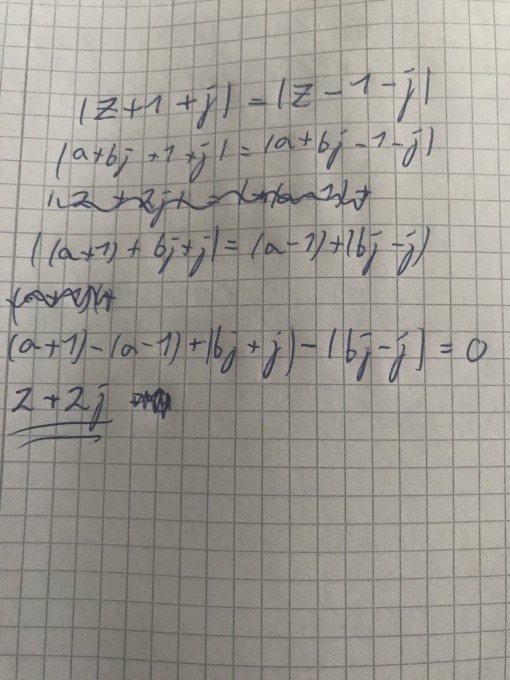 |z+1+j| = |z-1-j|
|a+bj+1+j| = |a+bj-1-j|
|(a+1)+bj+j| = (a-1)+(bj-j)
(a+1)-(a-1)+(bj+j)-(bj-j) = 0
2+2j